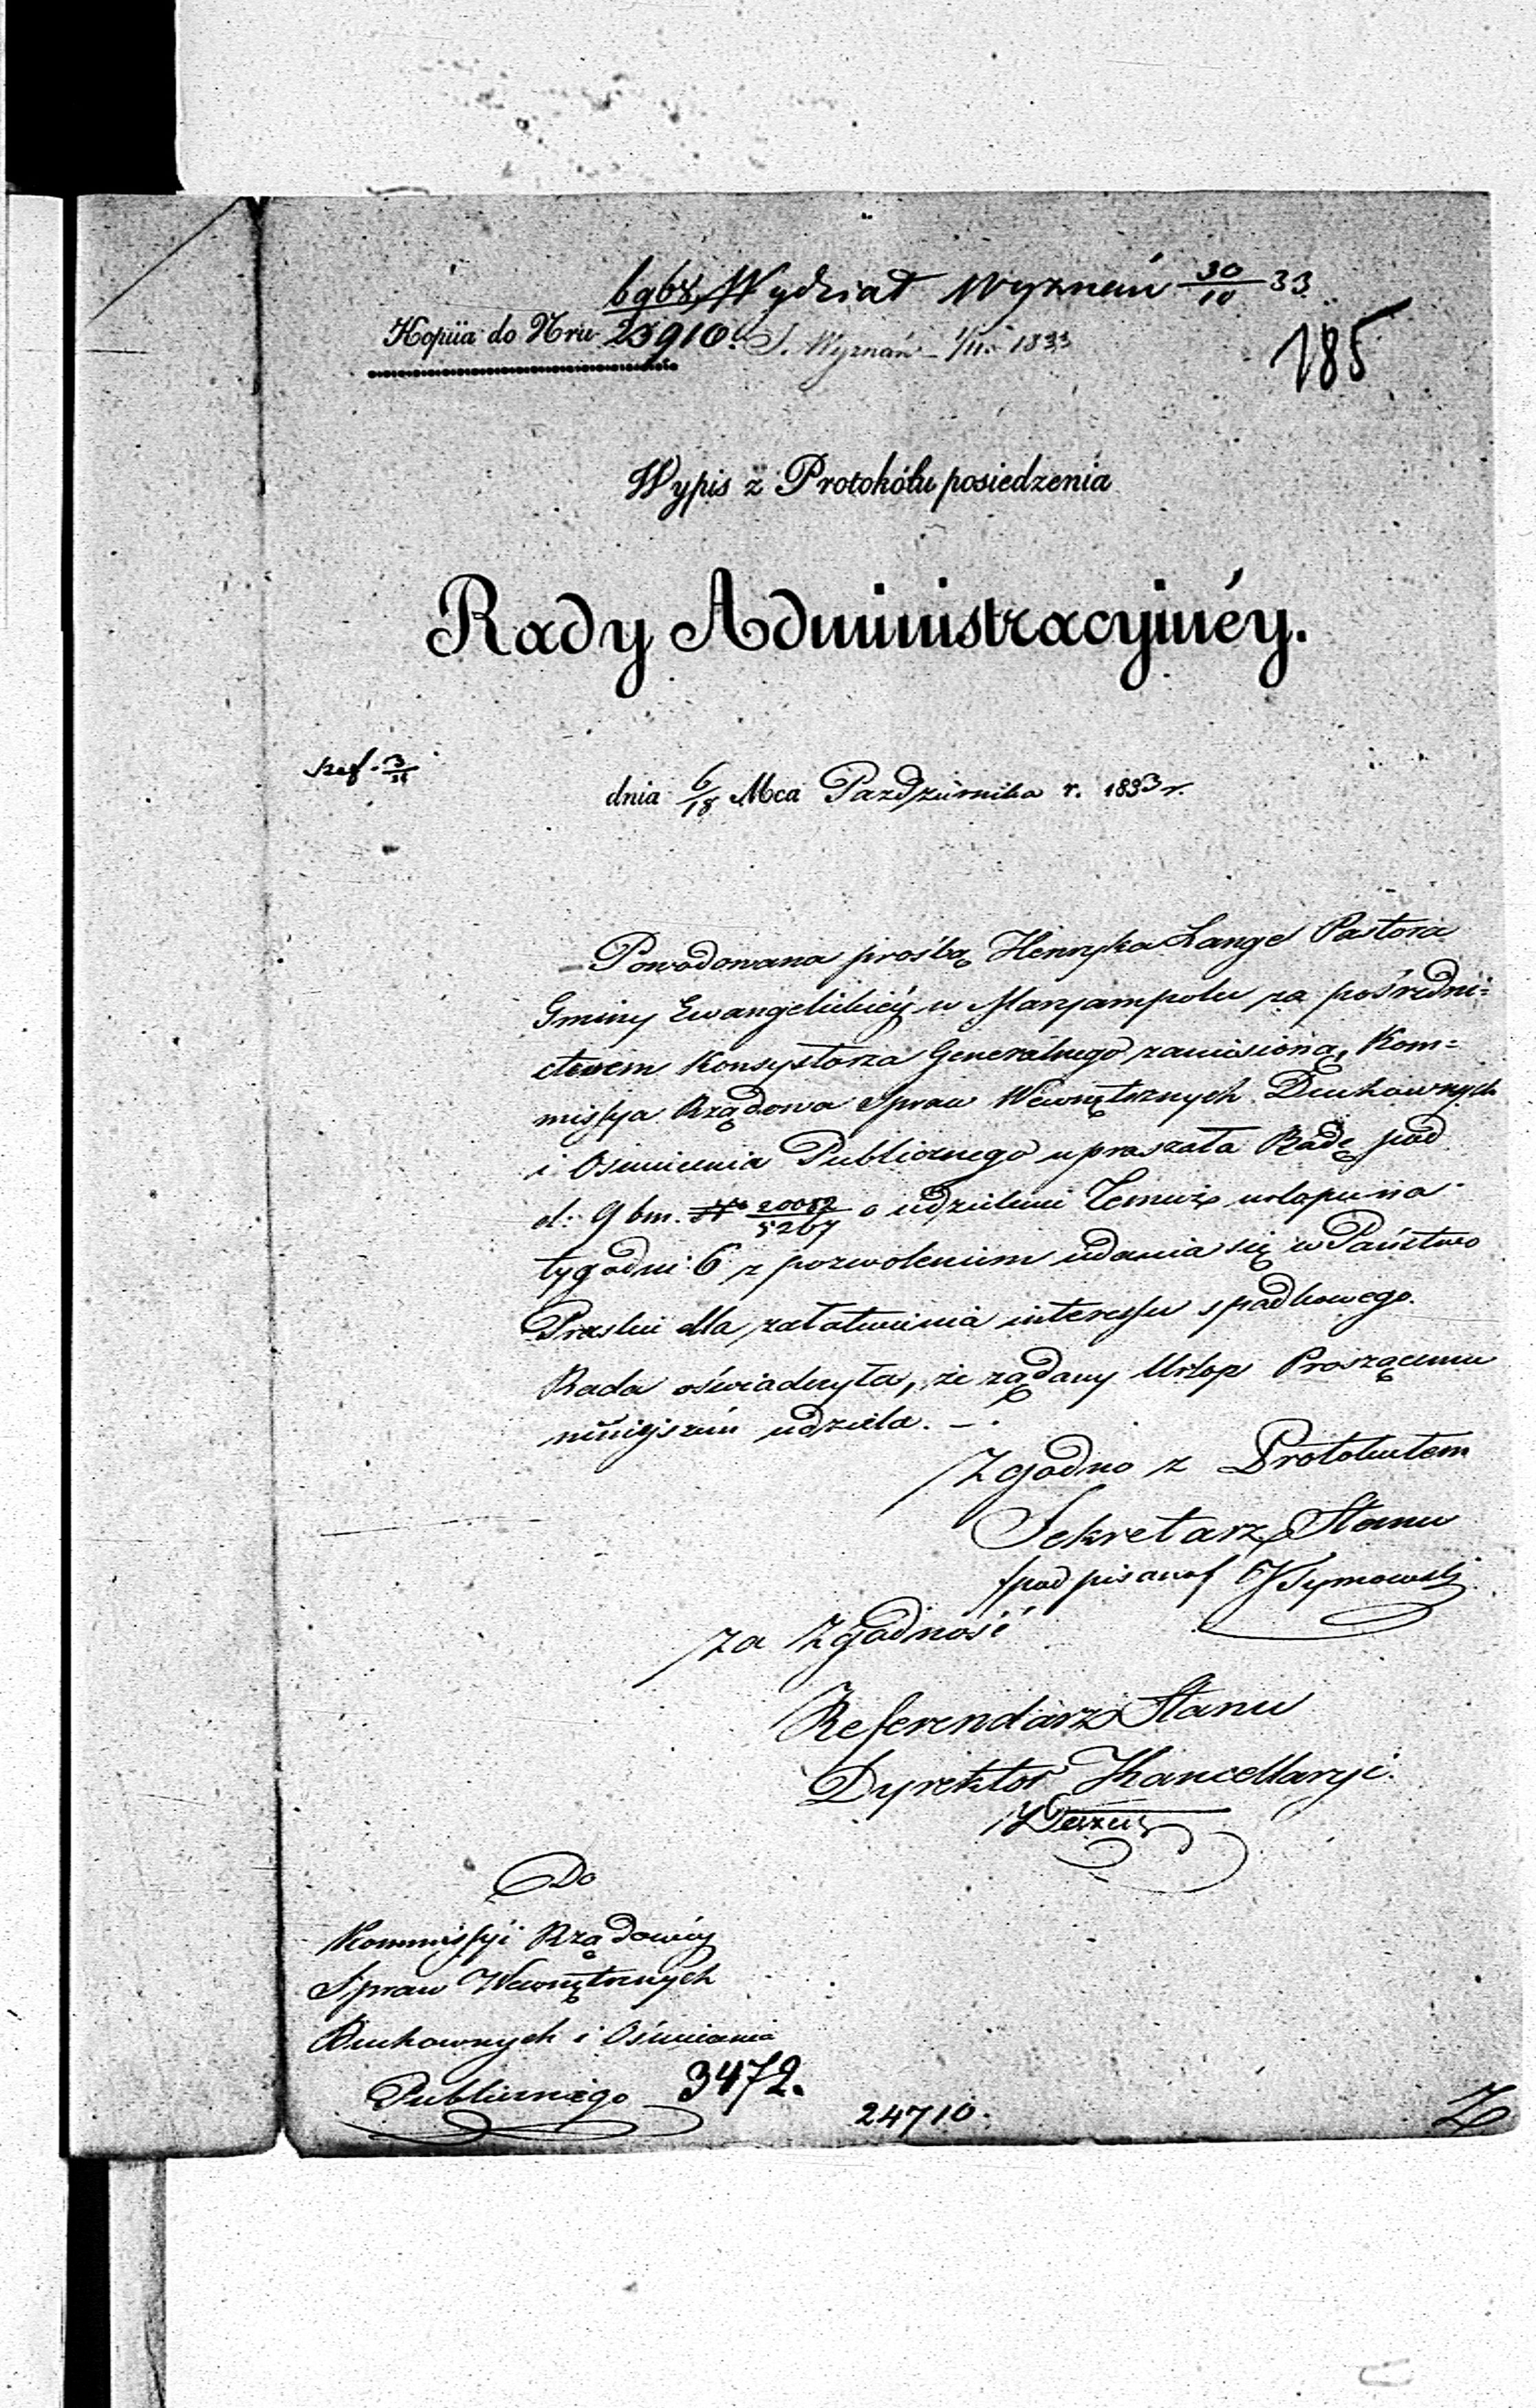 6968 Wydział Wyznań 30/10 33
Kopiia do Nru 23910. S. Wyznań 1/11. 1833
185
Wypis z Protokółu posiedzenia
Rady Administracyjnéy.
dnia 6/18 Mca Pazdziernika r. 1833 r.
Powodowana prośbą Henryka Lange Pastora
Gminy Ewangelickiéy w Maryampolu za pośredni=
ctwem Konsystorza Generalnego zaniesioną, Kom=
missya Rządowa Spraw Wewnętrznych Duchownych
i Oświecenia Publicznego upraszała Radę pod
d: 9 bm. No 20052/5267 o udzielenie Temuż urlopu na
tygodni 6 z pozwoleniem udania się w Państwo
Pruskie dla załatwienia interessu spadkowego.
Rada oświadczyła, że żądany Urlop Proszącemu
ninieyszém udziela. —
Zgodno z Protokułem
Sekretarz Stanu
/podpisano/ J Tymowski
Za Zgodność
Referendarz Stanu
Dyrektor Kancellaryi
Do
Kommissyi Rządowéy
Spraw Wewnętrznych
Duchownych i Oświecenia
Publicznego 3472.
24710.